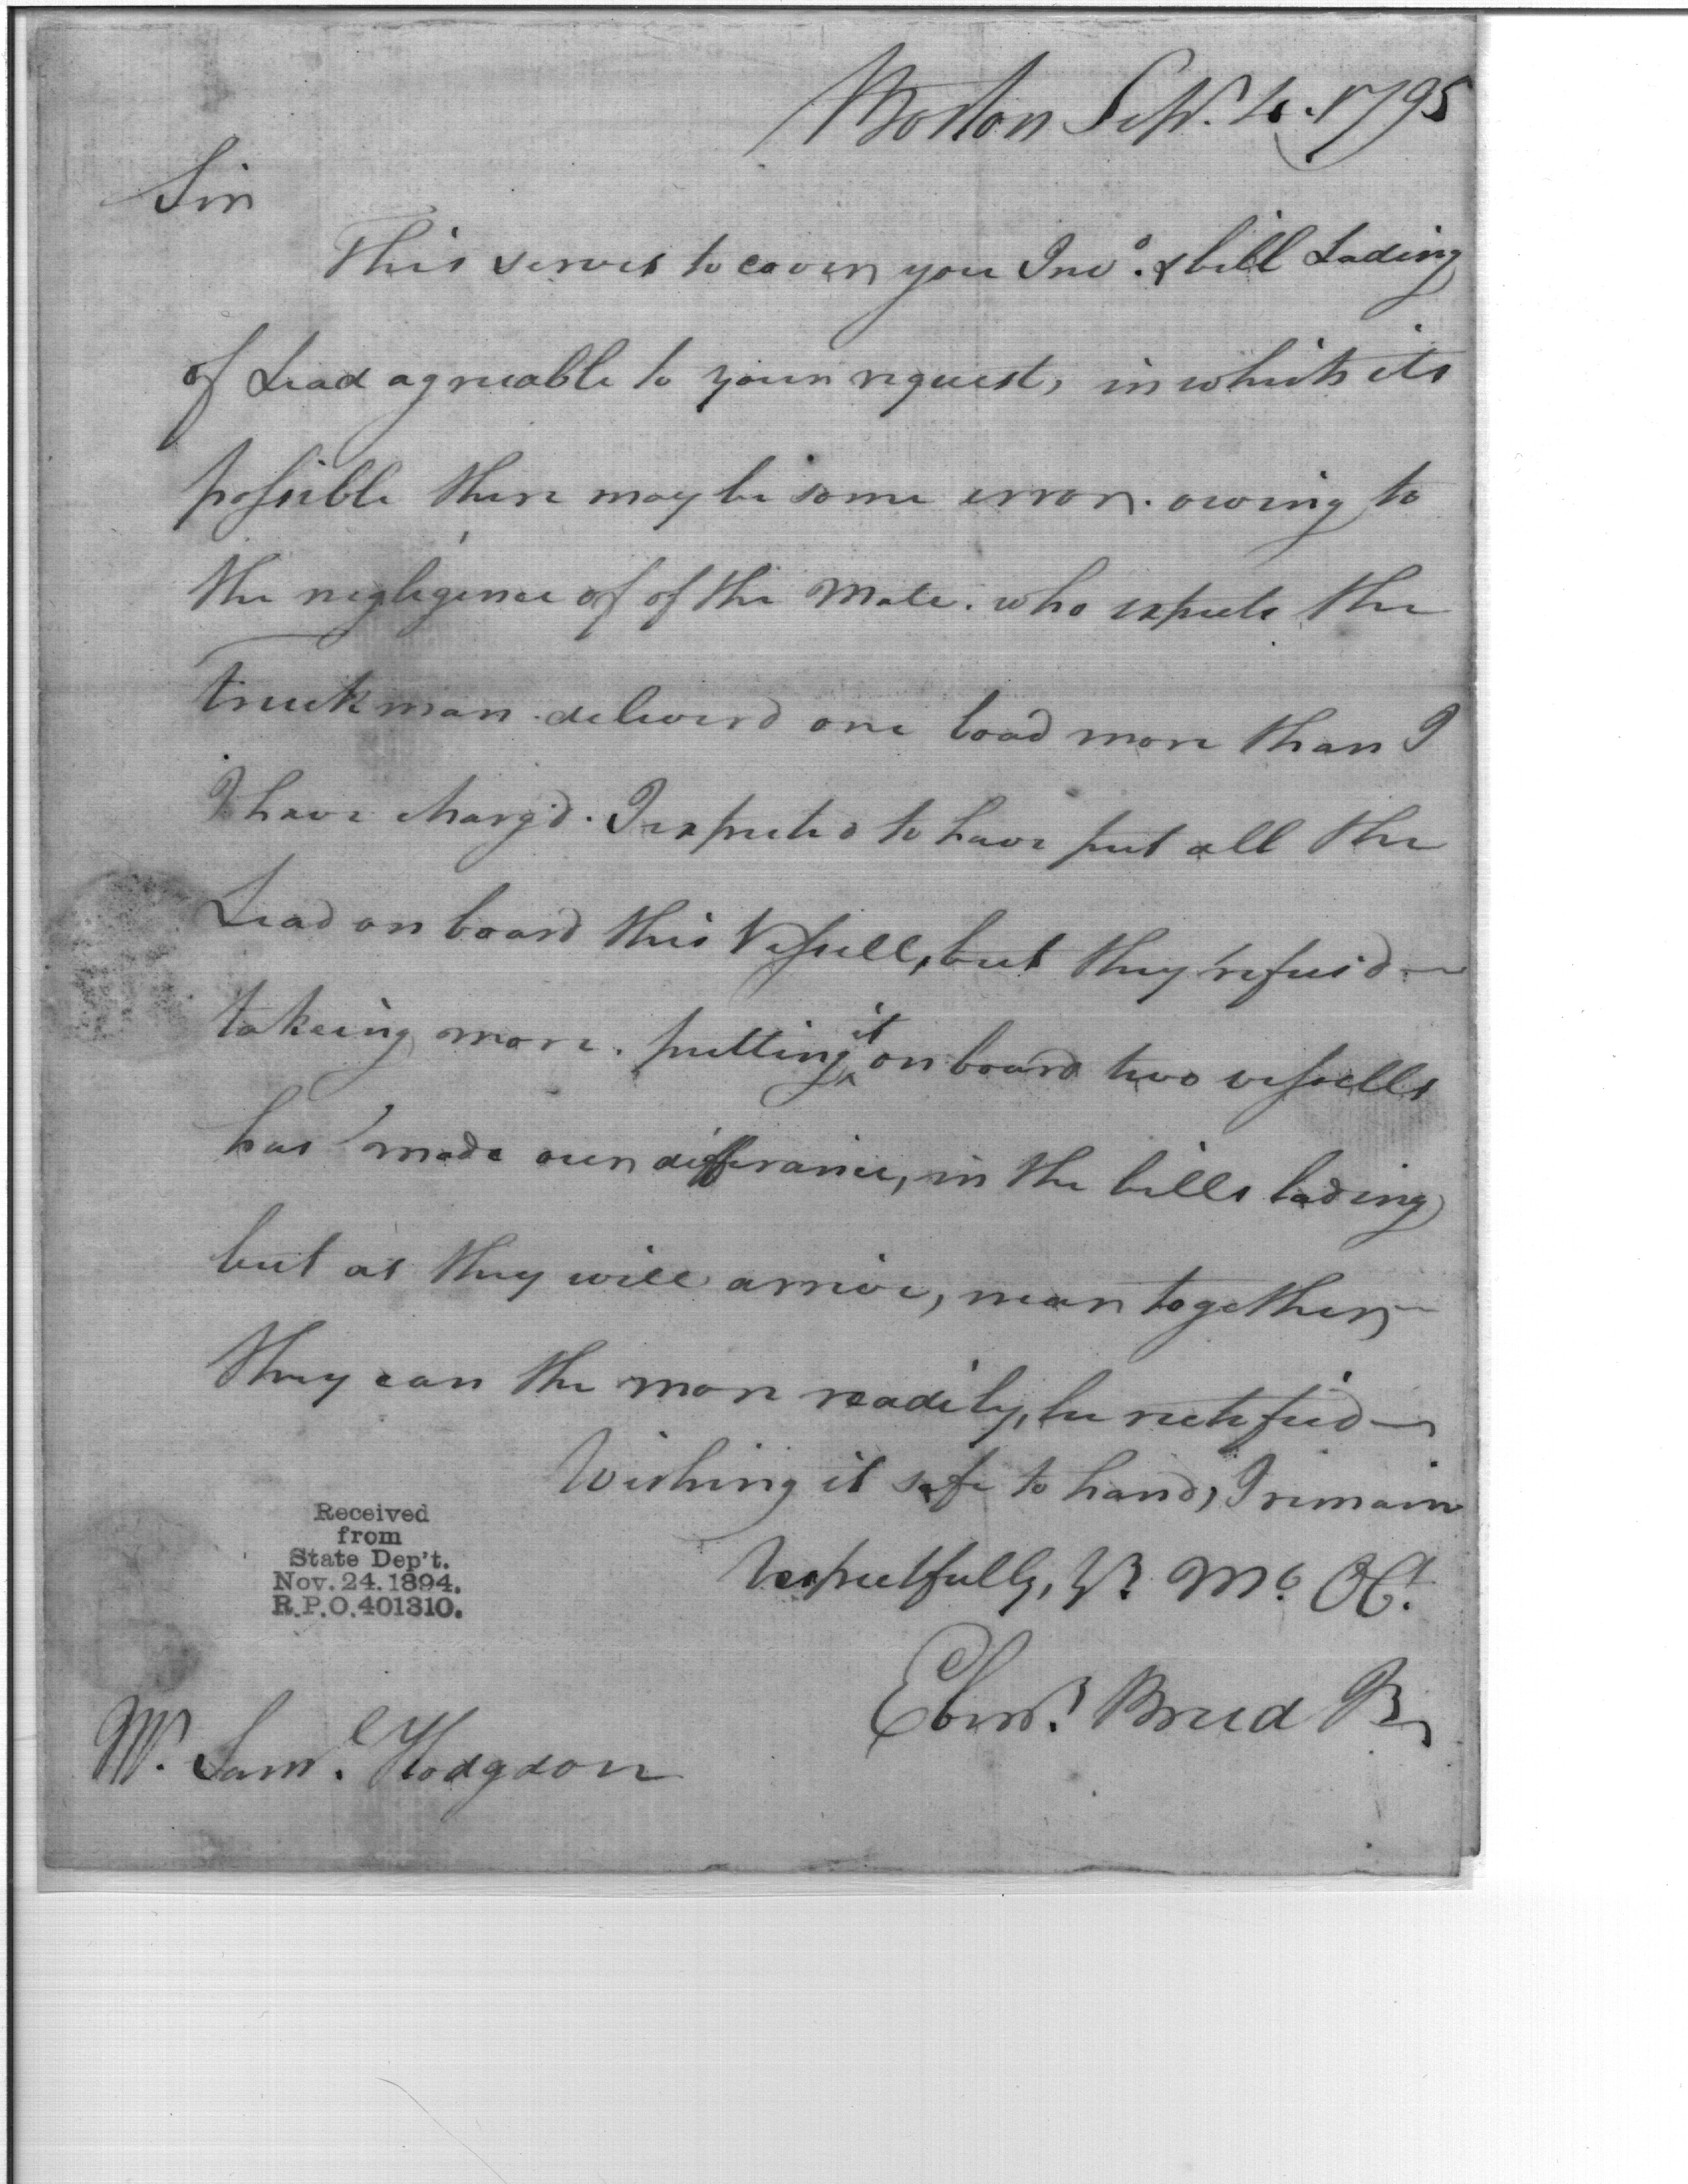 Boston Sepr. 4. 1795
Sir
This serves to cover you Invo. & bill Lading
of Lead agreeable to your request, in which its
possible there may be some error. owing to
the negligence of of the Mate. who expects the
Truckman deliverd one load more than I
I have charg'd. I expected to have put all the
Lead on board this Vessell, but they refus'd
takeing more. putting it on board two vessells
has made our differance, in the bills lading
but as they will arrive, near together
they can the more readily, be rectefied
Wishing it safe to hand, I remain
Respectfully, Yr. Mo. Ob.
Ebenr. Breed
Mr. Saml. Hodgdon
Received
from
State Dep't.
Nov. 24. 1894.
R.P.O. 401310.